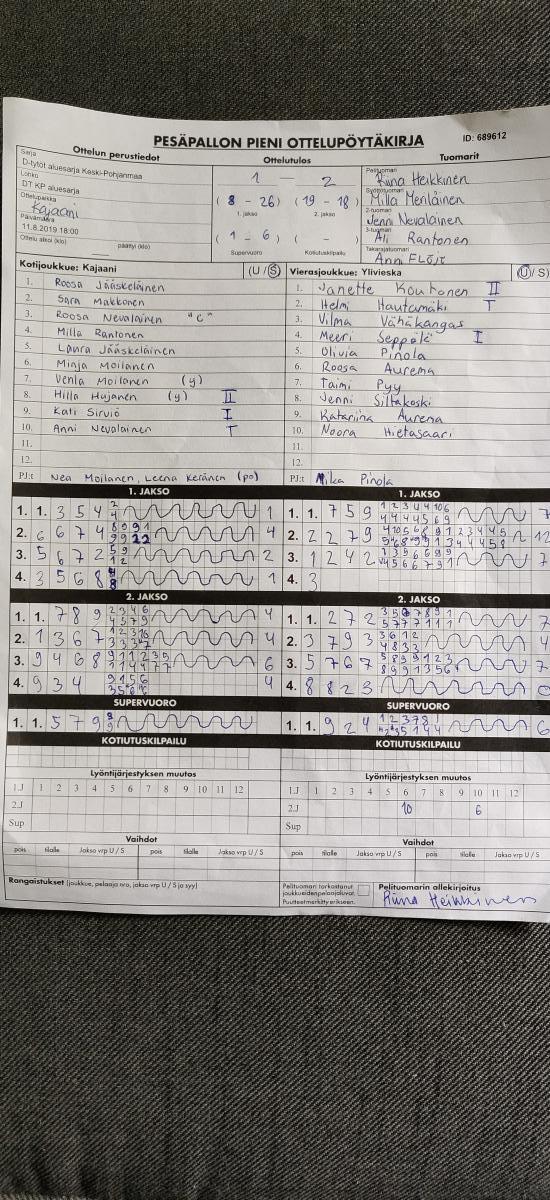 PESÄPALLON PIENI OTTELUPÖYTÄKIRJA ID: 689612
Ottelun perustiedot Ottelutulos Tuomarit
Sarja
D-tytöt aluesarja Keski-Pohjanmaa
Lohko
DT KP aluesarja
Ottelupaikka
Kajaani
Päivämäärä
11.8.2019 18:00
Ottelu alkoi (klo) päättyi (klo)
1 — 2
(8 - 26) (19 - 18)
1. jakso 2. jakso
(1 - 6) ( - )
Supervuoro Kotiutuskilpailu
Pelituomari
Riina Heikkinen
Syöttötuomari
Milla Meriläinen
2-tuomari
Jenni Nevalainen
3-tuomari
Ali Rantonen
Takarajatuomari
Anni Flöjt
Kotijoukkue: Kajaani (U/S)
1. Roosa Jääskeläinen
2. Sara Makkonen
3. Roosa Nevalainen "C"
4. Milla Rantonen
5. Laura Jääskeläinen
6. Minja Moilanen
7. Venla Moilanen (y)
8. Hilla Hujanen (y) II
9. Kati Sirviö I
10. Anni Nevalainen T
11.
12.
PJ:t Nea Moilanen, Leena Keränen (po)
Vierasjoukkue: Ylivieska (U/S)
1. Janette Kouhonen II
2. Helmi Hautamäki T
3. Vilma Vähäkangas
4. Meeri Seppälä I
5. Olivia Pinola
6. Roosa Aurema
7. Taimi Pyy
8. Jenni Siltakoski
9. Katariina Aurena
10. Noora Hietasaari
11.
12.
PJ:t Mika Pinola
1. JAKSO
1. 1. 3 5 4 1
2. 6 6 7 4 4
3. 5 6 7 2 2
4. 3 5 6 8 1
1. JAKSO
1. 1. 7 5 9 7
2. 2 2 7 9 12
3. 1 2 4 2 7
4. 3
2. JAKSO
1. 1. 7 8 9 4
2. 1 3 6 7 4
3. 9 4 6 8 6
4. 9 3 4 4
2. JAKSO
1. 1. 2 7 2 7
2. 3 7 9 3 4
3. 5 7 6 7 7
4. 8 8 2 3 0
SUPERVUORO
1. 1. 5 7 9 1
SUPERVUORO
1. 1. 9 2 4 6
KOTIUTUSKILPAILU
KOTIUTUSKILPAILU
Lyöntijärjestyksen muutos
1.J 1 2 3 4 5 6 7 8 9 10 11 12
2.J
Sup
Lyöntijärjestyksen muutos
1.J 1 2 3 4 5 6 7 8 9 10 11 12
2.J 10 6
Sup
Vaihdot
pois tilalle Jakso vrp U / S pois tilalle Jakso vrp U / S
Vaihdot
pois tilalle Jakso vrp U / S pois tilalle Jakso vrp U / S
Rangaistukset (joukkue, pelaaja nro, jakso vrp U / S ja syy)
Pelituomari tarkastanut
joukkueiden pelaajaluvat.
Puutteet merkitty erikseen.
Pelituomarin allekirjoitus
Riina Heikkinen